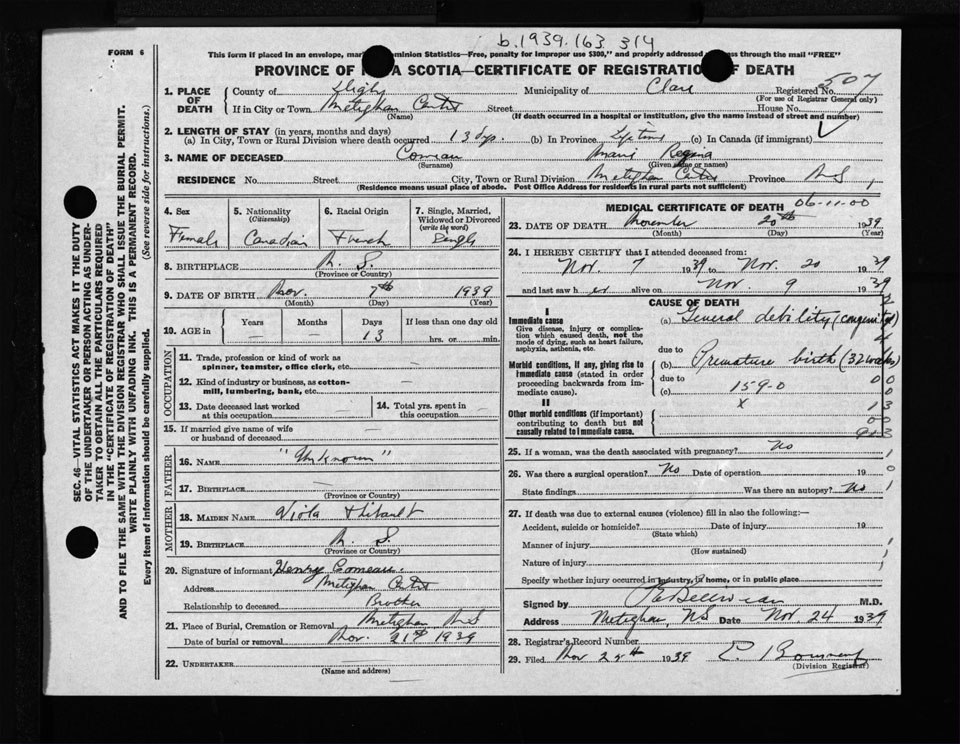 b.1939.163 314
FORM 6
This form if placed in an envelope, marked Dominion Statistics—Free, penalty for improper use $300," and properly addressed passes through the mail "FREE"
PROVINCE OF NOVA SCOTIA—CERTIFICATE OF REGISTRATION OF DEATH
1. PLACE OF DEATH
County of Digby Municipality of Clare Registered No. 507
(For use of Registrar General only)
If in City or Town Meteghan Centre Street House No.
(Name) (If death occurred in a hospital or institution, give the name instead of street and number)
2. LENGTH OF STAY (in years, months and days)
(a) In City, Town or Rural Division where death occurred 13 dys. (b) In Province Lifetime (c) In Canada (if immigrant)
3. NAME OF DECEASED Comeau Marie Regina
(Surname) (Given name or names)
RESIDENCE No. Street City, Town or Rural Division Meteghan Centre Province N S
(Residence means usual place of abode. Post Office Address for residents in rural parts not sufficient)
4. Sex
Female
5. Nationality
(Citizenship)
Canadian
6. Racial Origin
French
7. Single, Married, Widowed or Divorced
(write the word)
Single
8. BIRTHPLACE N. S.
(Province or Country)
9. DATE OF BIRTH Nov. 7th 1939
(Month) (Day) (Year)
10. AGE in
Years Months Days If less than one day old
— — 13 hrs. or min.
OCCUPATION
11. Trade, profession or kind of work as
spinner, teamster, office clerk, etc. —
12. Kind of industry or business, as cotton-
mill, lumbering, bank, etc. —
13. Date deceased last worked
at this occupation
14. Total yrs. spent in
this occupation
15. If married give name of wife
or husband of deceased
FATHER
16. NAME "Unknown"
17. BIRTHPLACE —
(Province or Country)
MOTHER
18. MAIDEN NAME Viola Thibault
19. BIRTHPLACE N. S.
(Province or Country)
20. Signature of informant Henry Comeau.
Address Meteghan Centre
Relationship to deceased Brother
21. Place of Burial, Cremation or Removal Meteghan N S
Date of burial or removal Nov. 21st 1939
22. UNDERTAKER
(Name and address)
MEDICAL CERTIFICATE OF DEATH 06-11-00
23. DATE OF DEATH November 20th 1939
(Month) (Day) (Year)
24. I HEREBY CERTIFY that I attended deceased from:
Nov. 7 1939 to Nov. 20 1939
and last saw h er alive on Nov. 9 1939
CAUSE OF DEATH
I
Immediate cause (a) General debility (congenital)
Give disease, injury or complica-
tion which caused death, not the
mode of dying, such as heart failure,
asphyxia, asthenia, etc.
due to
Morbid conditions, if any, giving rise to
immediate cause (stated in order
proceeding backwards from im-
mediate cause).
(b) Premature birth (32 weeks)
due to
(c) 159-0
II
Other morbid conditions (if important)
contributing to death but not
causally related to immediate cause.
x
25. If a woman, was the death associated with pregnancy? No
26. Was there a surgical operation? No Date of operation 19
State findings Was there an autopsy? No
27. If death was due to external causes (violence) fill in also the following:—
Accident, suicide or homicide? Date of injury 19
(State which)
Manner of injury
(How sustained)
Nature of injury
Specify whether injury occurred in industry, in home, or in public place
Signed by M.D.
Address Meteghan, NS Date Nov. 24 1939
28. Registrar's Record Number
29. Filed Nov 1939
(Division Registrar)
SEC. 46—VITAL STATISTICS ACT MAKES IT THE DUTY
OF THE UNDERTAKER OR PERSON ACTING AS UNDER-
TAKER TO OBTAIN ALL THE PARTICULARS REQUIRED
IN THE "CERTIFICATE OF REGISTRATION OF DEATH"
AND TO FILE THE SAME WITH THE DIVISION REGISTRAR WHO SHALL ISSUE THE BURIAL PERMIT.
WRITE PLAINLY WITH UNFADING INK. THIS IS A PERMANENT RECORD.
Every item of information should be carefully supplied. (See reverse side for instructions.)